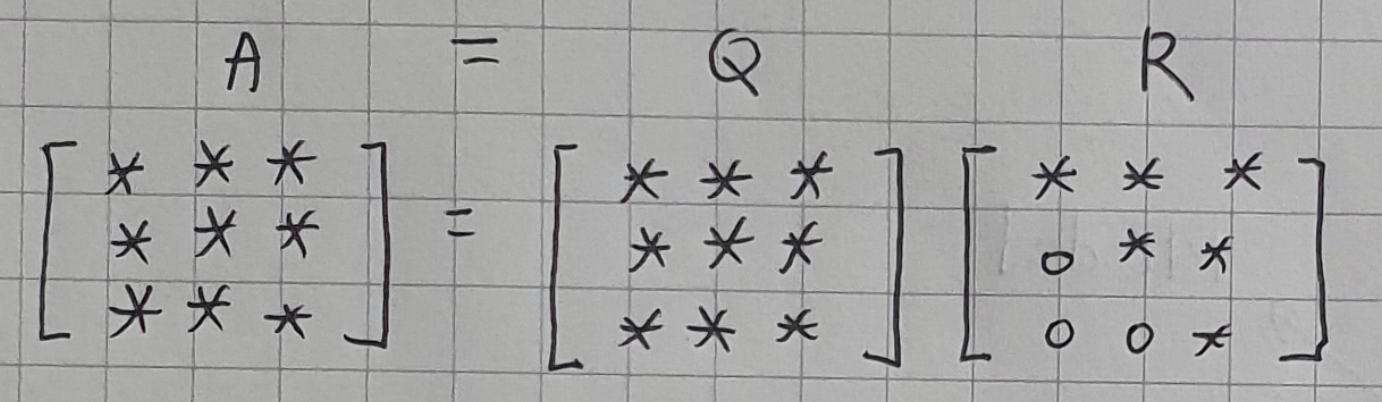 A = Q R
[ * * * ] = [ * * * ] [ * * * ]
[ * * * ] [ * * * ] [ 0 * * ]
[ * * * ] [ * * * ] [ 0 0 * ]